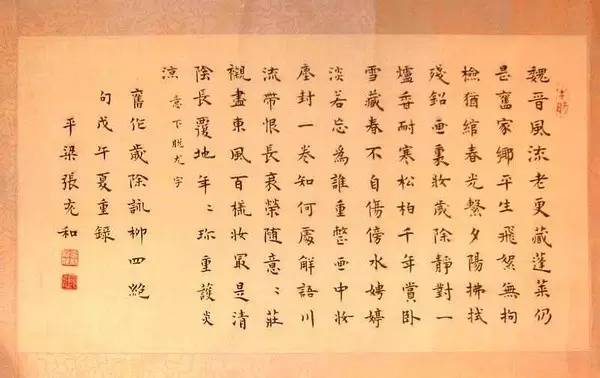 魏晉風流老更藏蓬萊仍
是舊家鄉平生飛絮無拘
檢猶綰春光繫夕陽拂拭
殘鉛畫裏妝歲除靜對一
爐香耐寒松柏千年賞臥
雪藏春不自傷傍水娉婷
淡若忘為誰重整畫中妝
塵封一卷知何處解語川
流帶恨長衰榮隨意〻莊
襯盡東風百樣妝最是清
陰長覆地年〻珍重護炎
涼 意下脫尤字
舊作歲除詠柳四絕
句戊午夏重錄
平梁張充和